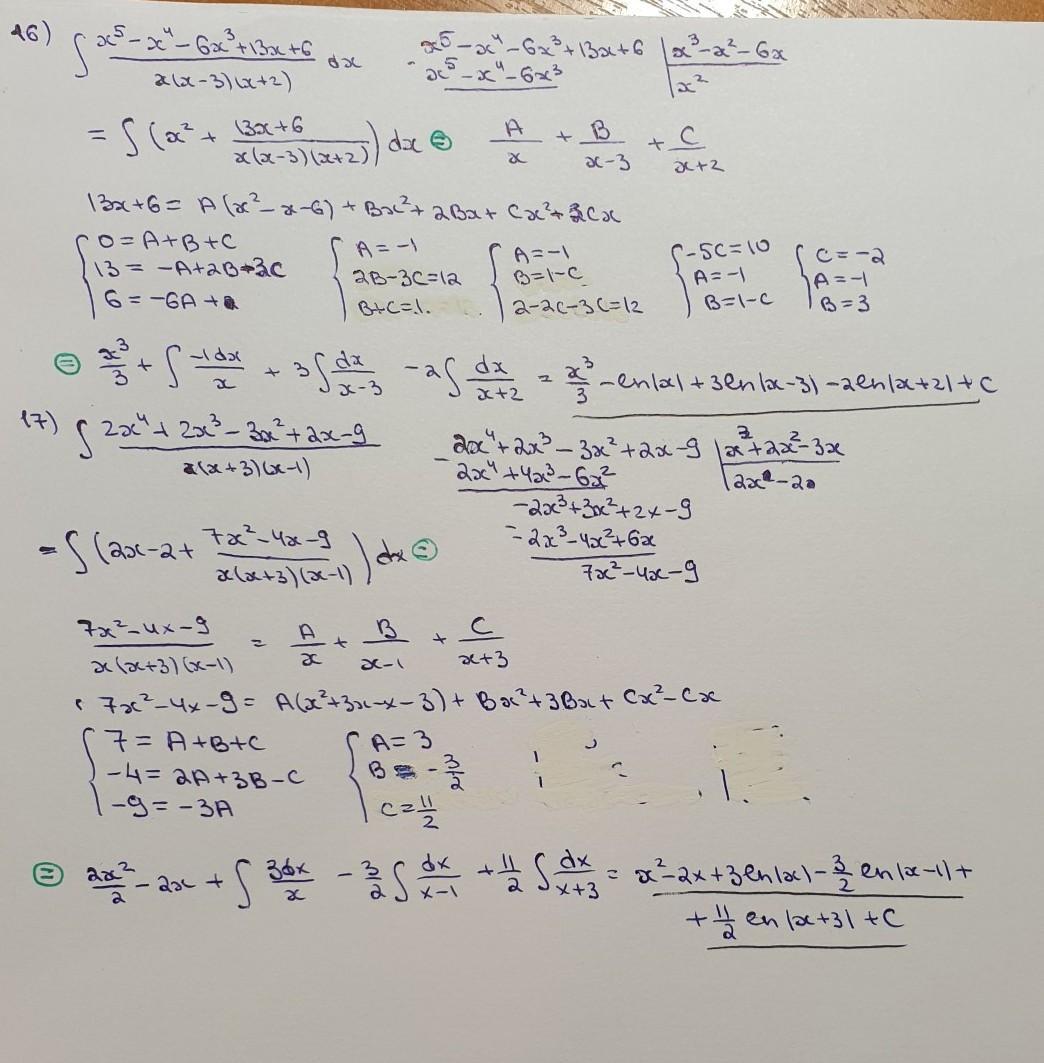 16) ∫ x⁵-x⁴-6x³+13x+6 / x(x-3)(x+2) dx
x⁵-x⁴-6x³+13x+6 | x³-x²-6x
- x⁵-x⁴-6x³ | x²
= ∫ (x² + 13x+6 / x(x-3)(x+2)) dx = A/x + B/x-3 + C/x+2
13x+6 = A(x²-x-6) + Bx²+2Bx+Cx²+3Cx
{ 0=A+B+C { A=-1 { A=-1 { -5C=10 { C=-2
13=-A+2B-3C 2B-3C=12 B=1-C A=-1 A=-1
6=-6A B+C=1. 2-2C-3C=12 B=1-C B=3
= x³/3 + ∫ -1dx/x + 3∫ dx/x-3 -2∫ dx/x+2 = x³/3 -ln|x|+3ln|x-3|-2ln|x+2|+C
17) ∫ 2x⁴+2x³-3x²+2x-9 / x(x+3)(x-1)
2x⁴+2x³-3x²+2x-9 | x³+2x²-3x
- 2x⁴+4x³-6x² | 2x-2
-2x³+3x²+2x-9
- -2x³-4x²+6x
7x²-4x-9
= ∫ (2x-2+ 7x²-4x-9 / x(x+3)(x-1)) dx =
7x²-4x-9 / x(x+3)(x-1) = A/x + B/x-1 + C/x+3
7x²-4x-9= A(x²+3x-x-3)+Bx²+3Bx+Cx²-Cx
{ 7=A+B+C { A=3
-4=2A+3B-C B=-3/2
-9=-3A C=11/2
= 2x²/2 -2x+∫ 3dx/x -3/2 ∫ dx/x-1 +11/2 ∫ dx/x+3 = x²-2x+3ln|x|-3/2 ln|x-1|+
+11/2 ln|x+3|+C